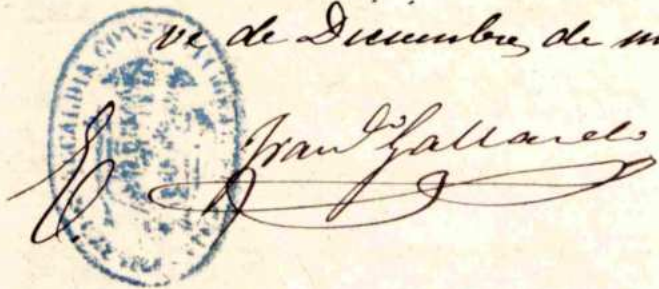 ve de Diciembre, de m
ALCALDIA CONSTITUCIONAL
E. Fran.co Gallardo